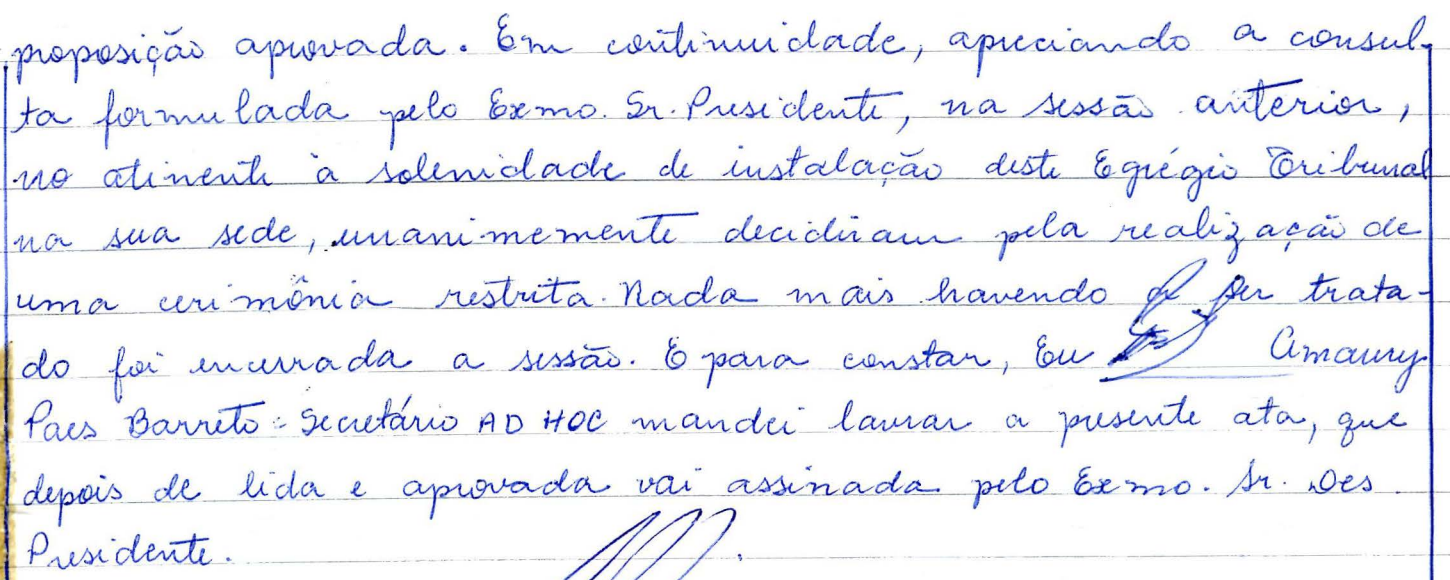 proposição aprovada. Em continuidade, apreciando a consul-
ta formulada pelo Exmo. Sr. Presidente, na sessão anterior,
no atinente à solenidade de instalação deste Egrégio Tribunal
na sua sede, unanimemente decidiram pela realização de
uma cerimônia restrita. Nada mais havendo a ser trata-
do foi encerrada a sessão. E para constar, Eu Amaury
Paes Barreto - Secretário AD HOC mandei lavrar a presente ata, que
depois de lida e aprovada vai assinada pelo Exmo. Sr. Des.
Presidente.